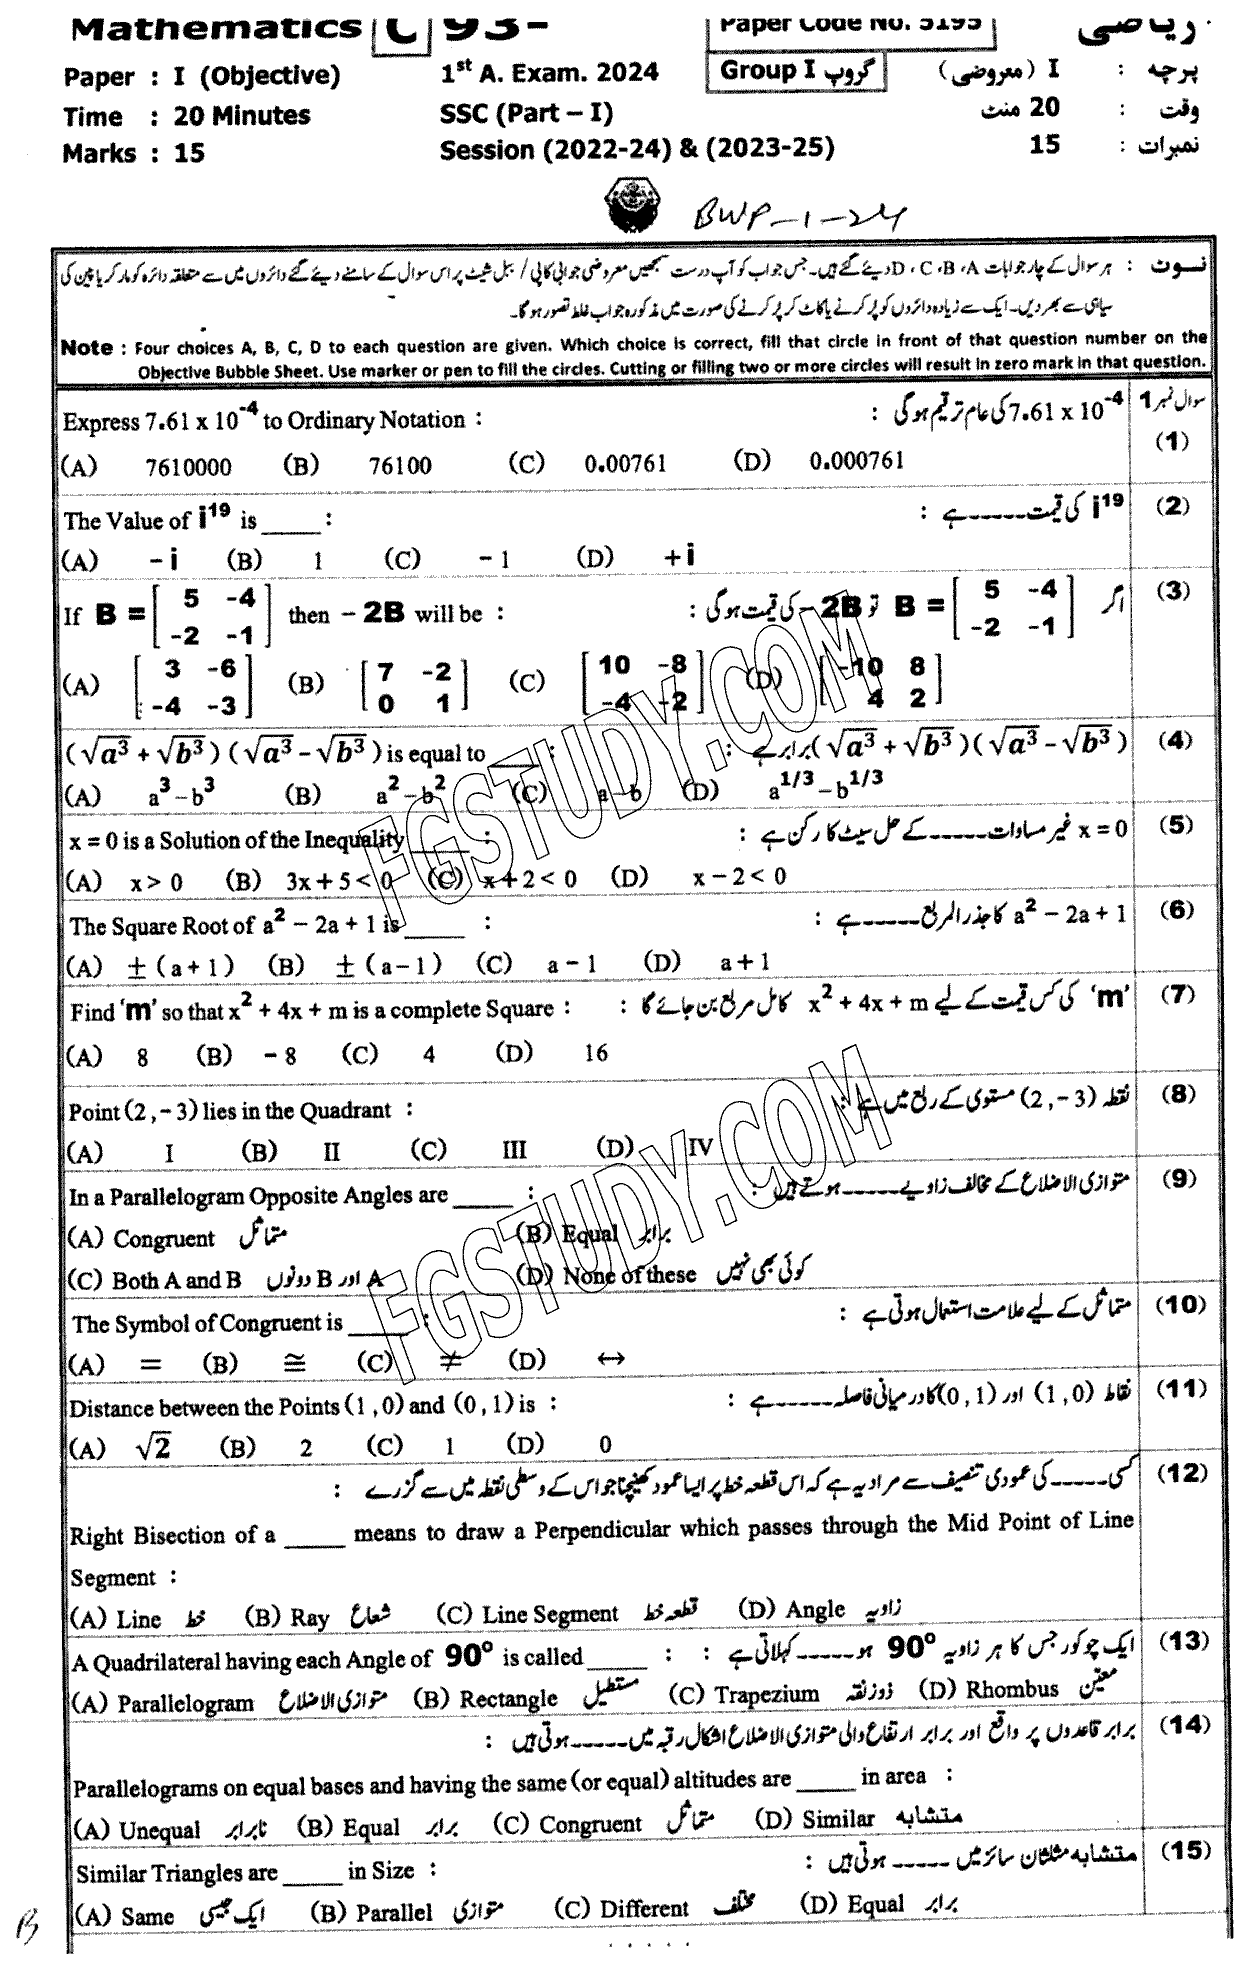 Mathematics C 93- Paper Code No. 5195 ریاضی
Paper : I (Objective) 1st A. Exam. 2024 Group I گروپ پرچہ : I (معروضی)
Time : 20 Minutes SSC (Part – I) وقت : 20 منٹ
Marks : 15 Session (2022-24) & (2023-25) نمبرات : 15
BWP-1-24
نوٹ : ہر سوال کے چار جوابات D ، C ، B ، A دیئے گئے ہیں۔ جس جواب کو آپ درست سمجھیں معروضی جوابی کاپی / ببل شیٹ پر اس سوال کے سامنے دیئے گئے دائروں میں سے متعلقہ دائرہ کو مارکر یا پین کی
سیاہی سے بھر دیں۔ ایک سے زیادہ دائروں کو پُر کرنے یا کاٹ کر پُر کرنے کی صورت میں مذکورہ جواب غلط تصور ہوگا۔
Note : Four choices A, B, C, D to each question are given. Which choice is correct, fill that circle in front of that question number on the
Objective Bubble Sheet. Use marker or pen to fill the circles. Cutting or filling two or more circles will result in zero mark in that question.
سوال نمبر 1
(1) Express 7.61 x 10⁻⁴ to Ordinary Notation : 7.61 x 10⁻⁴ کی عام ترقیم ہوگی :
(A) 7610000 (B) 76100 (C) 0.00761 (D) 0.000761
(2) The Value of i¹⁹ is _____ : i¹⁹ کی قیمت ----- ہے :
(A) – i (B) 1 (C) - 1 (D) + i
(3) If B = [5 -4; -2 -1] then – 2B will be : اگر B = [5 -4; -2 -1] تو – 2B کی قیمت ہوگی :
(A) [3 -6; -4 -3] (B) [7 -2; 0 1] (C) [10 -8; -4 -2] (D) [-10 8; 4 2]
(4) (√a³ + √b³) (√a³ – √b³) is equal to ____ : (√a³ + √b³)(√a³ – √b³) برابر ہے :
(A) a³ – b³ (B) a² – b² (C) a – b (D) a^1/3 – b^1/3
(5) x = 0 is a Solution of the Inequality _____ : x = 0 غیر مساوات ----- کے حل سیٹ کا رکن ہے :
(A) x > 0 (B) 3x + 5 < 0 (C) x + 2 < 0 (D) x – 2 < 0
(6) The Square Root of a² – 2a + 1 is _____ : a² – 2a + 1 کا جذر المربع ----- ہے :
(A) ± (a + 1) (B) ± (a – 1) (C) a – 1 (D) a + 1
(7) Find 'm' so that x² + 4x + m is a complete Square : 'm' کی کس قیمت کے لیے x² + 4x + m کامل مربع بن جائے گا :
(A) 8 (B) - 8 (C) 4 (D) 16
(8) Point (2 , – 3) lies in the Quadrant : نقطہ (2 , – 3) مستوی کے ربع میں ہے :
(A) I (B) II (C) III (D) IV
(9) In a Parallelogram Opposite Angles are _____ : متوازی الاضلاع کے مخالف زاویے ----- ہوتے ہیں :
(A) Congruent متماثل (B) Equal برابر
(C) Both A and B دونوں B اور A (D) None of these کوئی بھی نہیں
(10) The Symbol of Congruent is _____ : متماثل کے لیے علامت استعمال ہوتی ہے :
(A) = (B) ≅ (C) ≠ (D) ↔
(11) Distance between the Points (1 , 0) and (0 , 1) is : نقاط (1 , 0) اور (0 , 1) کا درمیانی فاصلہ ----- ہے :
(A) √2 (B) 2 (C) 1 (D) 0
(12) کسی ----- کی عمودی تنصیف سے مراد یہ ہے کہ اس قطعہ خط پر ایسا عمود کھینچنا جو اس کے وسطی نقطہ میں سے گزرے :
Right Bisection of a _____ means to draw a Perpendicular which passes through the Mid Point of Line
Segment :
(A) Line خط (B) Ray شعاع (C) Line Segment قطعہ خط (D) Angle زاویہ
(13) A Quadrilateral having each Angle of 90° is called _____ : ایک چوکور جس کا ہر زاویہ 90° ہو ----- کہلاتی ہے :
(A) Parallelogram متوازی الاضلاع (B) Rectangle مستطیل (C) Trapezium ذوزنقہ (D) Rhombus معین
(14) برابر قاعدوں پر واقع اور برابر ارتفاع والی متوازی الاضلاع اشکال رقبہ میں ----- ہوتی ہیں :
Parallelograms on equal bases and having the same (or equal) altitudes are _____ in area :
(A) Unequal نابرابر (B) Equal برابر (C) Congruent متماثل (D) Similar متشابہ
(15) Similar Triangles are _____ in Size : متشابہ مثلثان سائز میں ----- ہوتی ہیں :
(A) Same ایک جیسی (B) Parallel متوازی (C) Different مختلف (D) Equal برابر
B
FGSTUDY.COM
FGSTUDY.COM